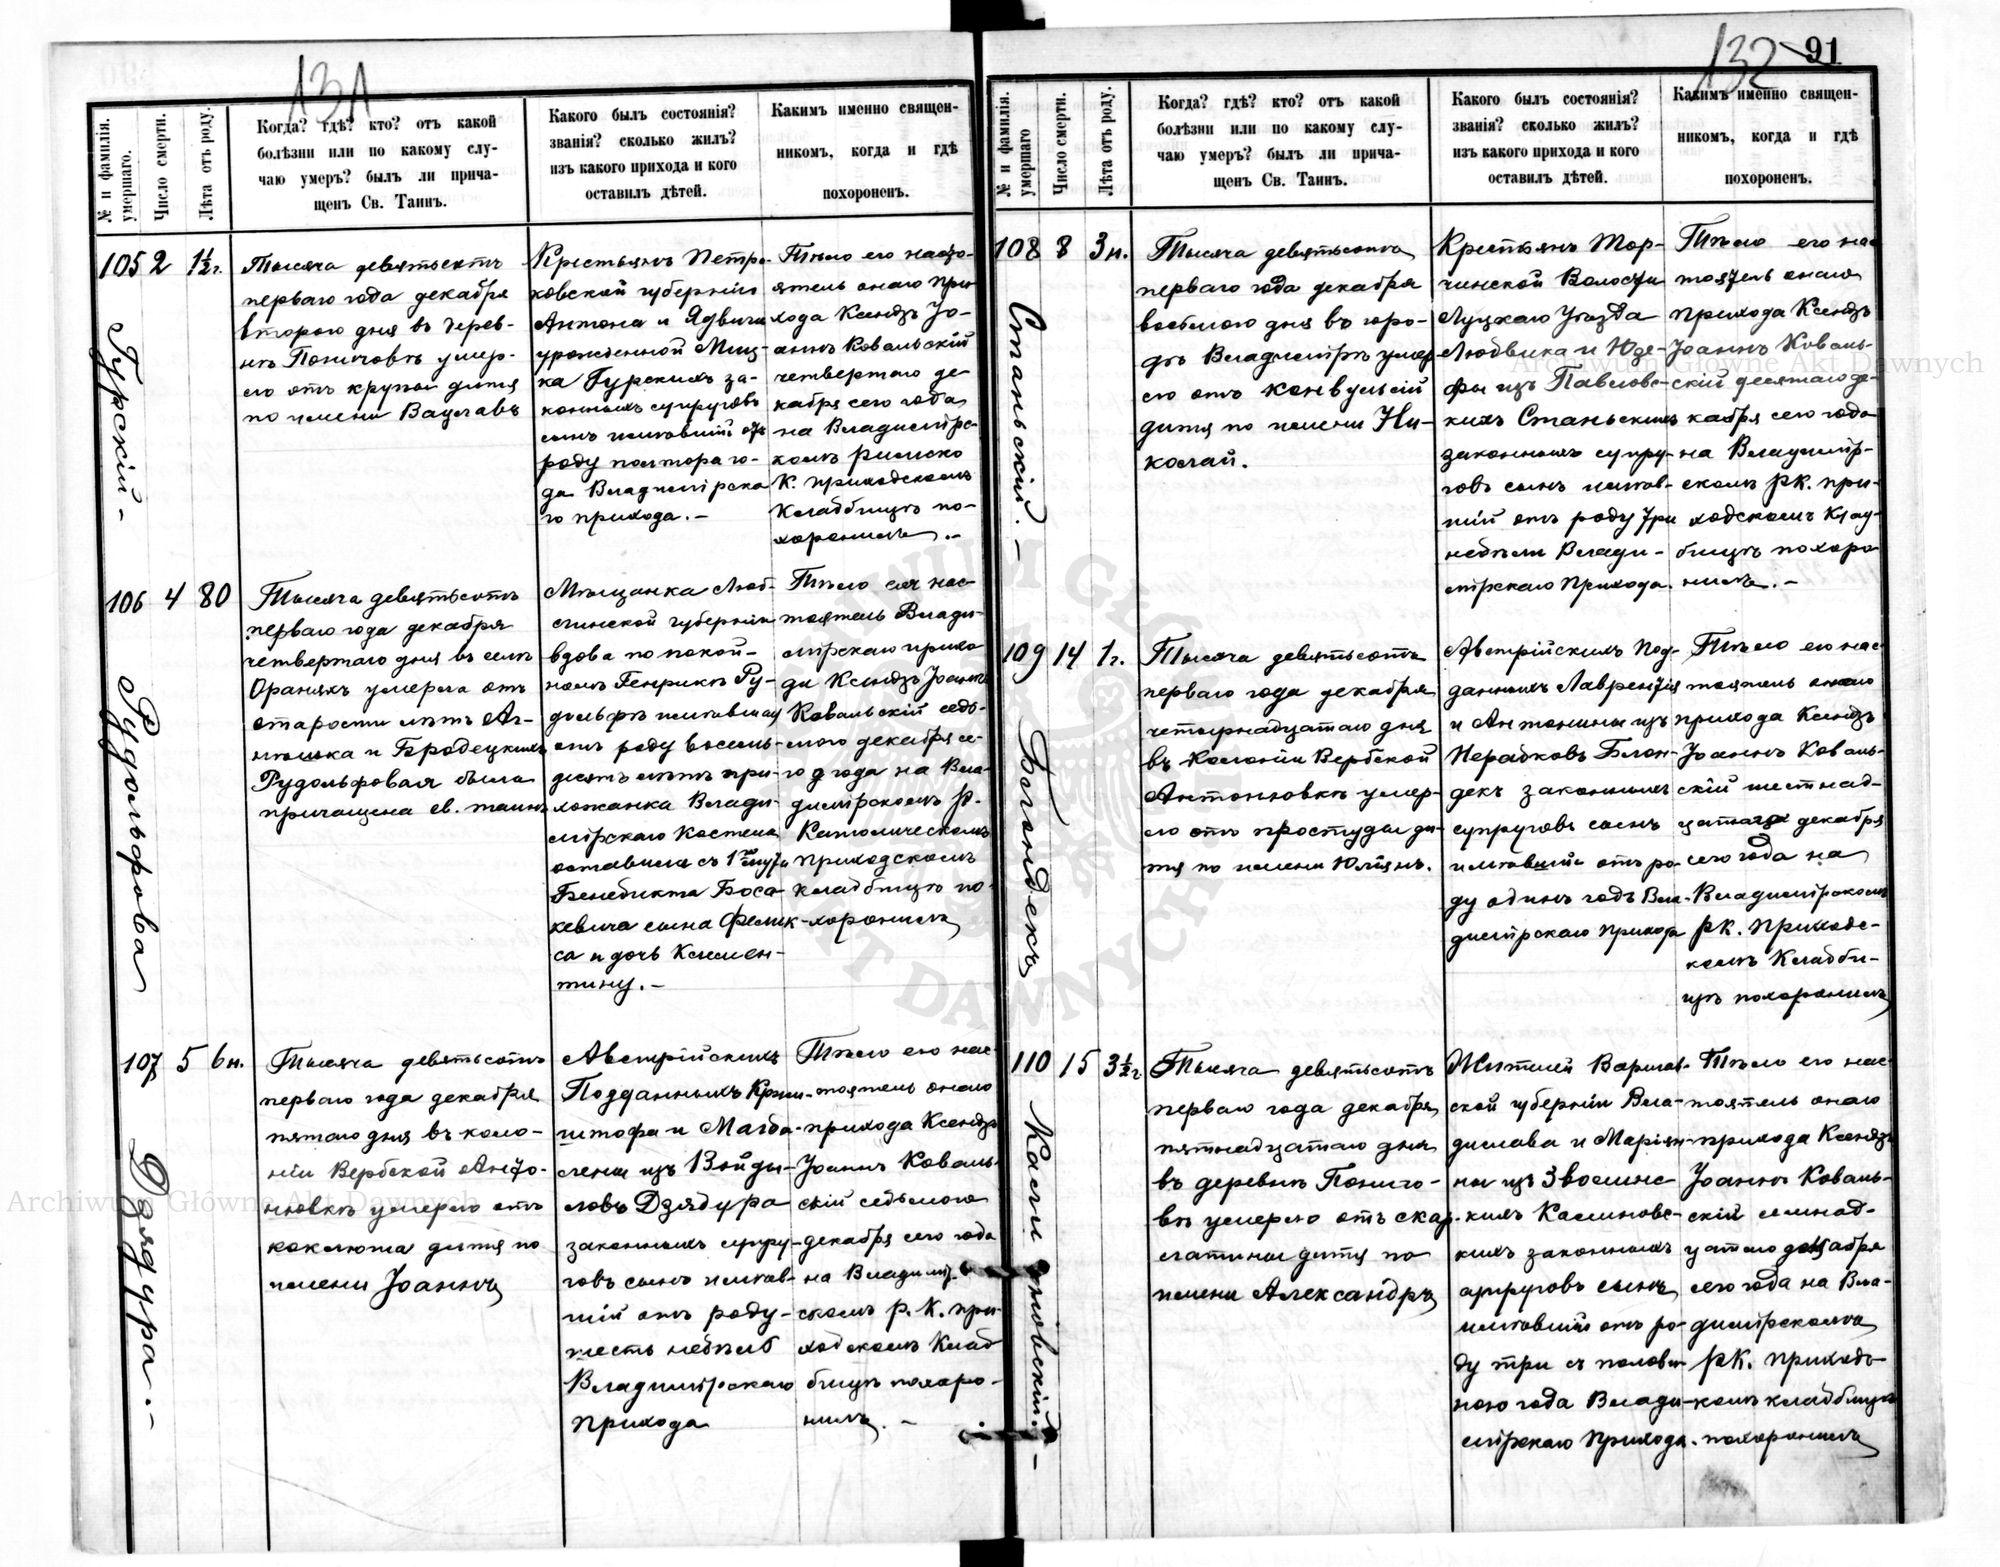 131
№ и фамилія. умершаго.
Число смерти.
Лѣта отъ роду.
Когда? гдѣ? кто? отъ какой
болѣзни или по какому слу-
чаю умеръ? былъ ли прича-
щенъ Св. Таинъ.
Какого былъ состоянія?
званія? сколько жилъ?
изъ какого прихода и кого
оставилъ дѣтей.
Каким именно священ-
никомъ, когда и гдѣ
похороненъ.
105 2 1½ г.
Гурскій -
Тысяча девятьсотъ
перваго года декабря
второго дня въ дерев-
нѣ Поничовѣ умер-
ло отъ крупой дитя
по имени Вацлавъ
Крестьянъ Петро-
ковской губерніи
Антона и Ядвиги
урожденной Миц-
ка Гурскихъ за-
конныхъ супруговъ
сынъ имѣвшій отъ
роду полтора го-
да Владимірска
го прихода. -
Тѣло его насто-
ятель онаго при
хода Ксендзъ Іо-
аннъ Ковальскій
четвертаго де
кабря сего года
на Владимірс-
комъ римско
К. приходскомъ
Кладбищѣ по-
хоронилъ. -
106 4 80
Рудольфова
Тысяча девятьсотъ
перваго года декабря
четвертаго дня въ селѣ
Ораняхъ умерла отъ
старости лѣтъ Аг-
нѣшка и Бродецкихъ
Рудольфовая была
причащена св. таинъ
Мѣщанка Люб-
линской губерніи
вдова по покой-
номъ Генрикѣ Ру-
дольфѣ имѣвшая
отъ роду восемь-
десятъ лѣтъ при-
хожанка Влади-
мірскаго Костела
оставила съ 1мъ мужа
Бенедикта Боса-
кевича сына Фелик
са и дочь Клемен-
тину. -
Тѣло ея нас-
тоятель Влади-
мірскаго прихо
да Ксендзъ Іоаннъ
Ковальскій седь-
мого декабря се-
го года на Вла-
димірскомъ Р.
Католическомъ
приходскомъ
кладбищѣ по-
хоронилъ
107 5 6 н.
Дзядура. -
Тысяча девятьсотъ
перваго года декабря
пятаго дня въ коло-
ніи Вербской Анто-
новкѣ умерло отъ
коклюша дитя по
имени Іоаннъ
Австрійскихъ
Подданныхъ Кржи-
штофа и Магда-
лени изъ Войды-
ловъ Дзядура
законныхъ супру-
говъ сынъ имѣв-
шій отъ роду
шесть недѣль
Владимірскаго
прихода
Тѣло его нас-
тоятель онаго
прихода Ксендзъ
Іоаннъ Коваль-
скій седьмого
декабря сего года
на Владимір-
скомъ р. К. при-
ходскомъ Клад
бищѣ похоро-
нилъ. -
132 91
№ и фамилія. умершаго
Число смерти.
Лѣта отъ роду.
Когда? гдѣ? кто? отъ какой
болѣзни или по какому слу-
чаю умеръ? былъ ли прича-
щенъ Св. Таинъ.
Какого былъ состоянія?
званія? сколько жилъ?
изъ какого прихода и кого
оставилъ дѣтей.
Какимъ именно священ-
никомъ, когда и гдѣ
похороненъ.
108 8 3 н.
Станьскій. -
Тысяча девятьсотъ
перваго года декабря
восьмого дня въ горо-
дѣ Владимірѣ умер
ло отъ конвульсій
дитя по имени Ни-
колай.
Крестьянъ Тор-
чинской Волости
Луцкаго Уѣзда
Людвика и Юзе-
фы изъ Павловс-
кихъ Станьскихъ
законныхъ супру-
говъ сынъ имѣв-
шій отъ роду три
недѣли Влади-
мірскаго Прихода.
Тѣло его нас
тоятель онаго
прихода Ксендзъ
Іоаннъ Коваль-
скій десятаго де-
кабря сего года
на Владимір-
скомъ рк. при-
ходскомъ клад-
бищѣ похоро
нилъ. -
109 14 1 г.
Богондекъ
Тысяча девятьсотъ
перваго года декабря
четырнадцатаго дня
въ Колоніи Вербской
Антоновкѣ умер-
ло отъ простуды ди-
тя по имени Юліянъ.
Австрійскихъ Под-
данныхъ Лаврентія
и Антонины изъ
супруговъ сынъ
имѣвшій отъ ро-
ду одинъ годъ Вла-
димірскаго прихода
Тѣло его нас-
тоятель онаго
прихода Ксендзъ
Іоаннъ Коваль-
скій шестнад-
цатаго декабря
сего года на
Владимірскомъ
рк. Приходс-
комъ Кладби-
щѣ похоронилъ
110 15 3½ г
Калиновскій. -
Тысяча девятьсотъ
перваго года декабря
пятнадцатаго дня
въ деревнѣ Пониго-
вѣ умерло отъ скар-
латины дитя по
имени Александръ
Жителей Варшав-
ской губерніи Вла-
дислава и Маріян-
ны изъ Зволинс
кихъ Калиновс-
кихъ законныхъ
супруговъ сынъ
имѣвшій отъ ро-
ду три съ полови-
ною года Влади-
мірскаго Прихода.
Тѣло его нас-
тоятель онаго
прихода Ксендзъ
Іоаннъ Коваль-
скій семнад-
цатаго декабря
сего года на Вла-
димірскомъ
рк. приходс-
комъ кладбищѣ
похоронилъ
Archiwum Główne Akt Dawnych
Archiwum Główne Akt Dawnych
ARCHIWUM GŁÓWNE AKT DAWNYCH